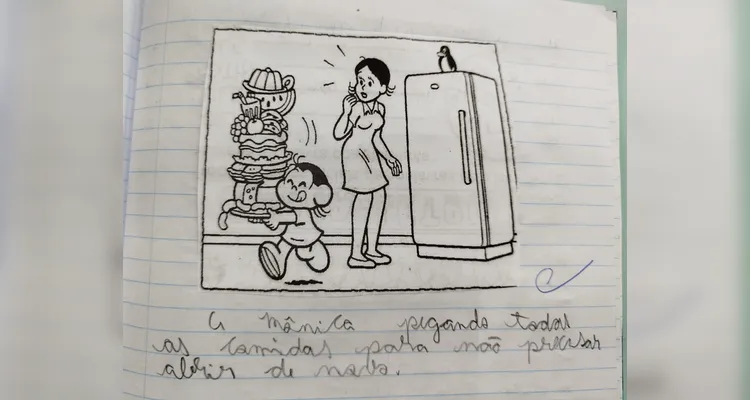 A Mônica pegando todas
as comidas para não precisar
abrir de novo.